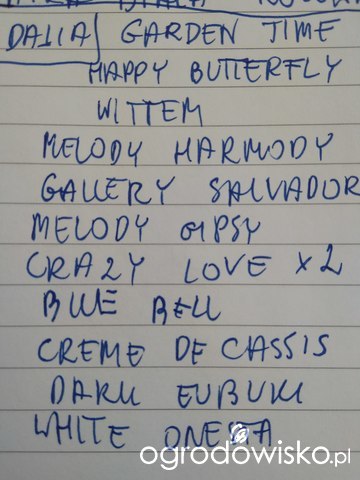 DALIA GARDEN TIME
HAPPY BUTTERFLY
WITTEM
MELODY HARMODY
GALLERY SALVADOR
MELODY GIPSY
CRAZY LOVE x2
BLUE BELL
CREME DE CASSIS
DARK FUBUKI
WHITE ONESTA
ogrodowisko.pl